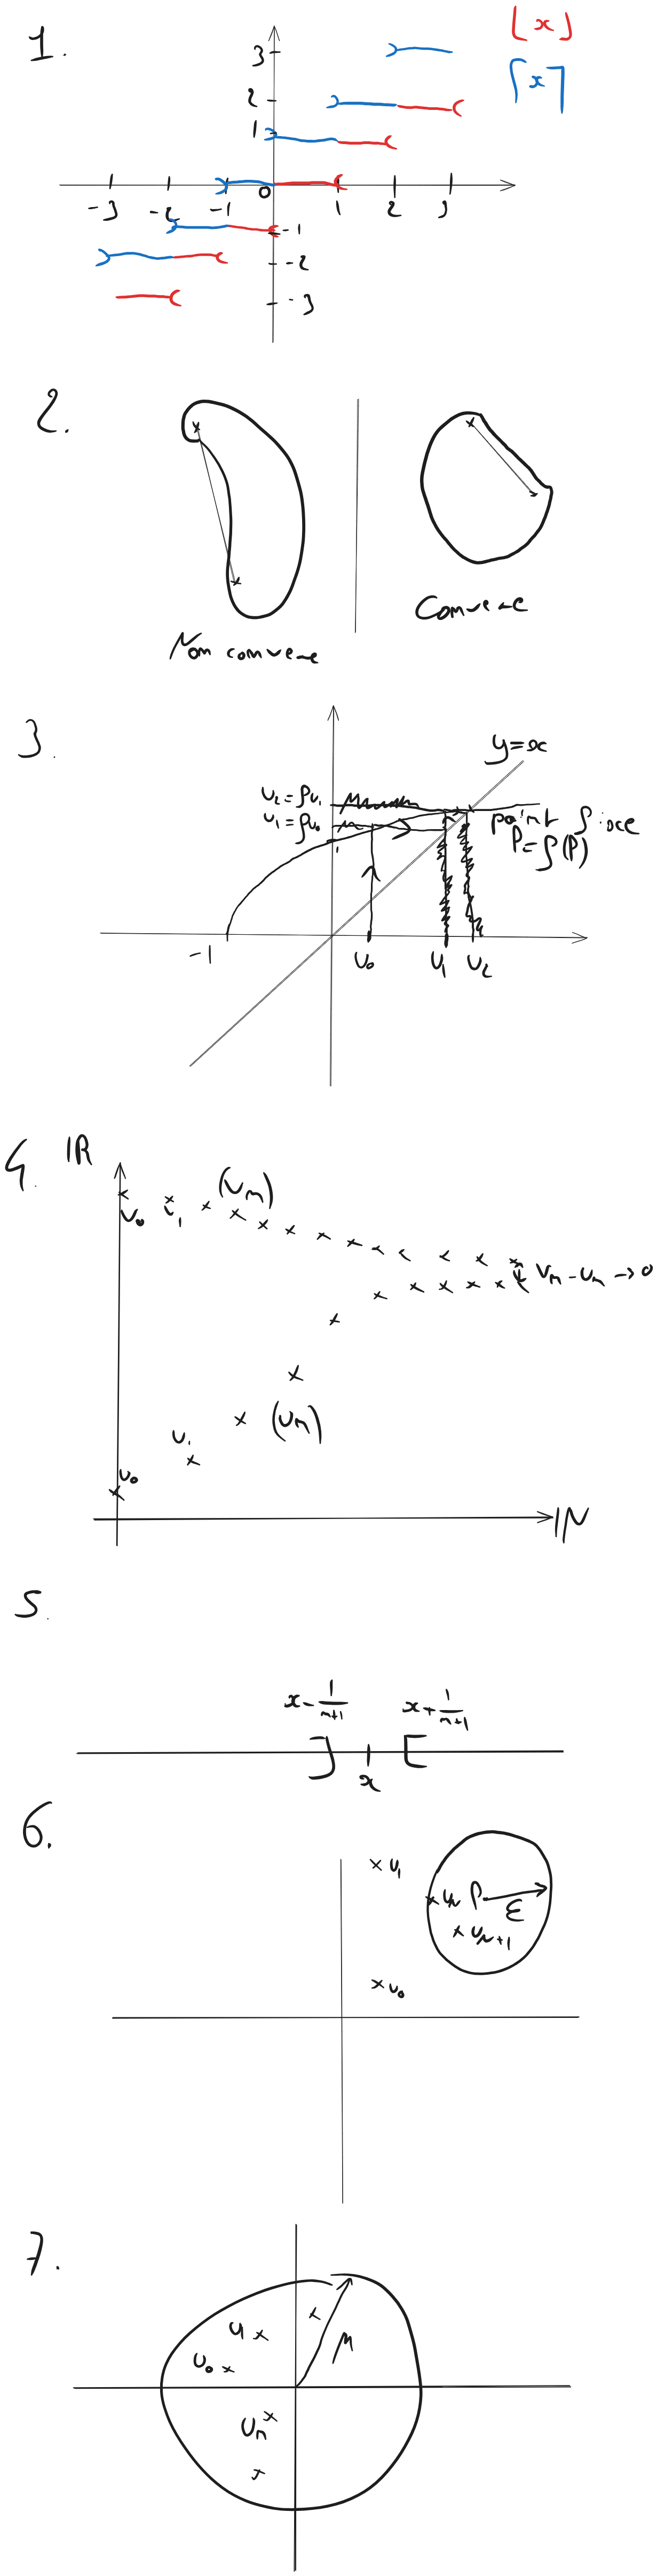 1.
⌊x⌋
⌈x⌉
3
2
1
-3 -2 -1 0 1 2 3
-1
-2
-3
2.
Non convexe
Convexe
3.
y=x
U₂=fU₁
U₁=fU₀
point fixe
P=f(P)
1
-1
U₀ U₁ U₂
4. IR
(Vn)
V₀ V₁
Vn-Un→0
(Un)
U₁
U₀
IN
5.
x-1/(n+1) x+1/(n+1)
x
6.
U₁
UN P
ε
UN+1
U₀
7.
U₁
M
U₀
Un